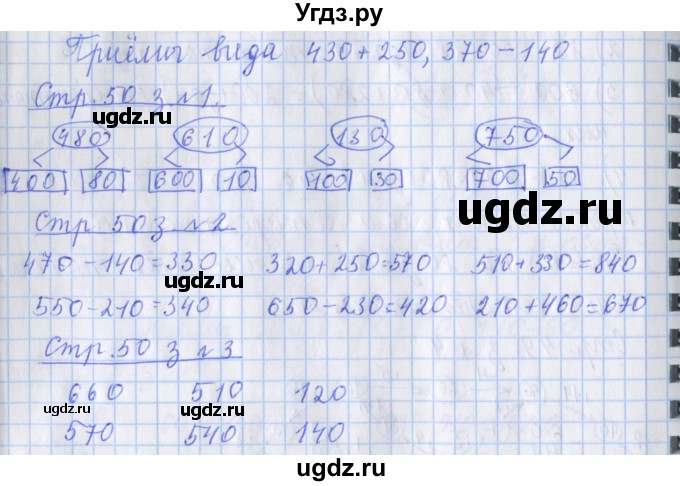 Угдз.ру
Приёмы вида 430+250, 370-140
Стр. 50 з №1.
480 610 130 750
400 80 600 10 100 30 700 50
угдз.ру
ugdz.ru
ugdz.ru
Стр 50 з №2
470-140=330 320+250=570 510+330=840
ugdz.ru
550-210=340 650-230=420 210+460=670
Стр.50 з №3
660 510 120
ugdz.ru
ugdz.ru
570 540 140
ugdz.ru